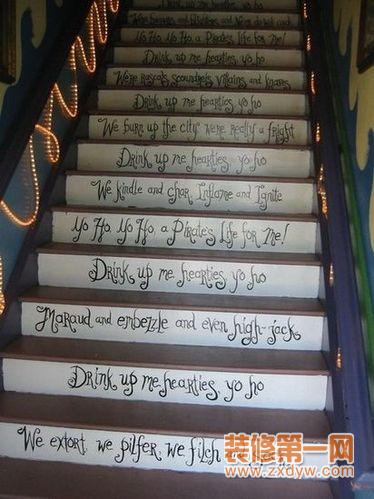 Drink up me hearties yo ho
Yo Ho, Yo Ho, a Pirate's Life for Me!
Drink up me hearties, yo ho
We're rascals, scoundrels, villains, and knaves
Drink up me hearties yo ho
We burn up the city we're really a fright
Drink up me hearties yo ho
We kindle and char, Inflame and Ignite
Yo Ho, Yo Ho, a Pirate's Life for Me!
Drink up me hearties yo ho
Maraud and enbezzle and even high-jack
Drink up me hearties, yo ho
We extort we pilfer we filch
装修第一网
www.zxdyw.com